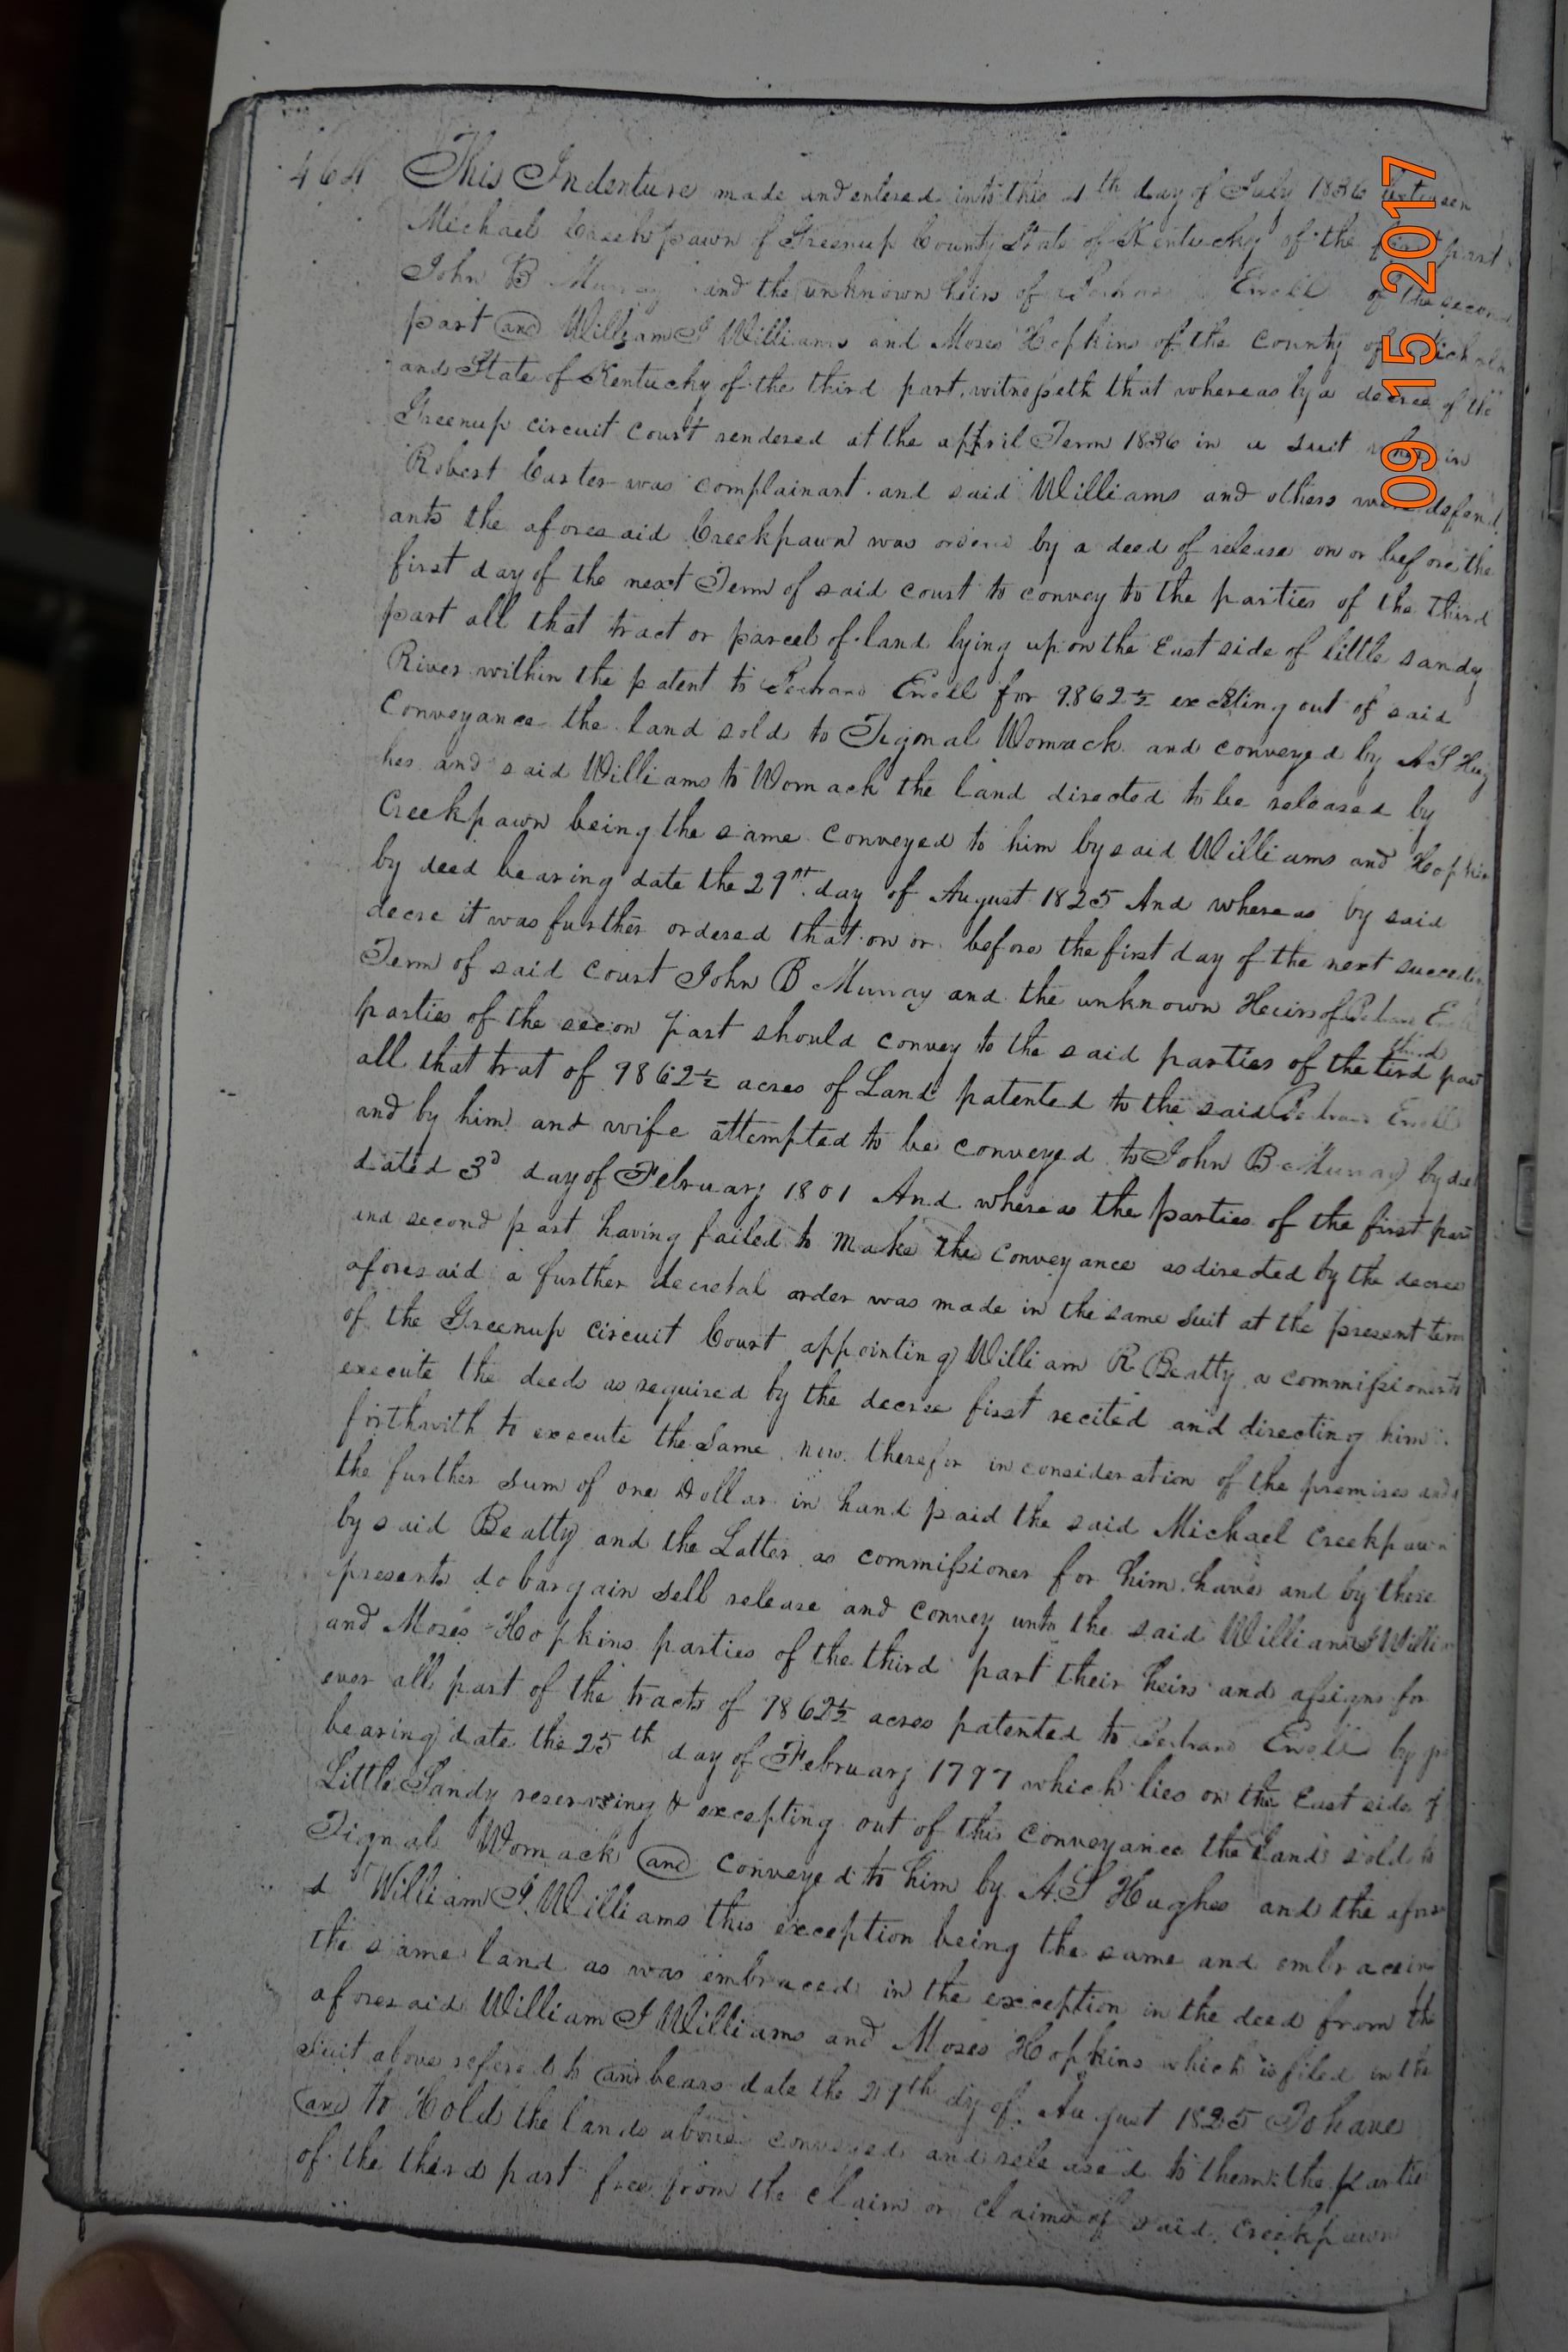 464 This Indenture made and entered into this 4th day of July 1836 between
Michael Creekpawn of Greenup County State of Kentucky of the first part
John B Murray and the unknown heirs of Bertrand Ewell of the second
part and William I Williams and Moses Hopkins of the County of
and State of Kentucky of the third part, witnesseth that whereas by a decree of the
Greenup circuit court rendered at the appril Term 1836 in a suit wherein
Robert Carter was complainant and said Williams and others were defend
ants the aforesaid Creekpawn was orderd by a deed of release on or before the
first day of the next Term of said court to convey to the parties of the third
part all that tract or parcel of land lying upon the East side of little sandy
River within the patent to Bertrand Ewell for 9862½ excepting out of said
Conveyance the land sold to Tignal Womack and conveyed by A S Hug
hes and said Williams to Womack the land directed to be released by
Creekpawn being the same conveyed to him by said Williams and Hopkins
by deed bearing date the 29th day of August 1825 And whereas by said
decre it was further ordered that on or before the first day of the next succeding
Term of said court John B Murray and the unknown Heirs of
parties of the secon part should convey to the said parties of the tird third part
all that trat of 9862½ acres of Land patented to the said Ewell
and by him and wife attempted to be conveyed to John B Murray by deed
dated 3d day of February 1801 And whereas the parties of the first part
and second part having failed to make the conveyance as directed by the decree
aforesaid a further decretal order was made in the same suit at the present term
of the Greenup circuit Court appointing William R Beatty a commissioner to
execute the deeds as required by the decree first recited and directing him
forthwith to execute the same now therefor in consideration of the premises and
the further sum of one Dollar in hand paid the said Michael Creekpawn
by said Beatty and the Latter as commissioner for him have and by these
presents do bargain sell release and convey unto the said William I Williams
and Moses Hopkins parties of the third part their heirs and assigns for
ever all part of the tracts of 9862½ acres patented to Bertrand Ewell by
bearing date the 25th day of February 1797 which lies on the East side of
Little Sandy reserving & excepting out of this conveyance the land sold to
Tignal Womack and conveyed to him by A. S Hughes and the afores
d William I. Williams this exception being the same and embracing
the same land as was embraced in the exception in the deed from the
aforesaid William I Williams and Moses Hopkins which is filed in the
suit above refered to and bears date the 29th dy of August 1825 To have
and to Hold the lands above conveyed and released to them the parties
of the third part free from the claim or claims of said Creekpawn
09 15 2017